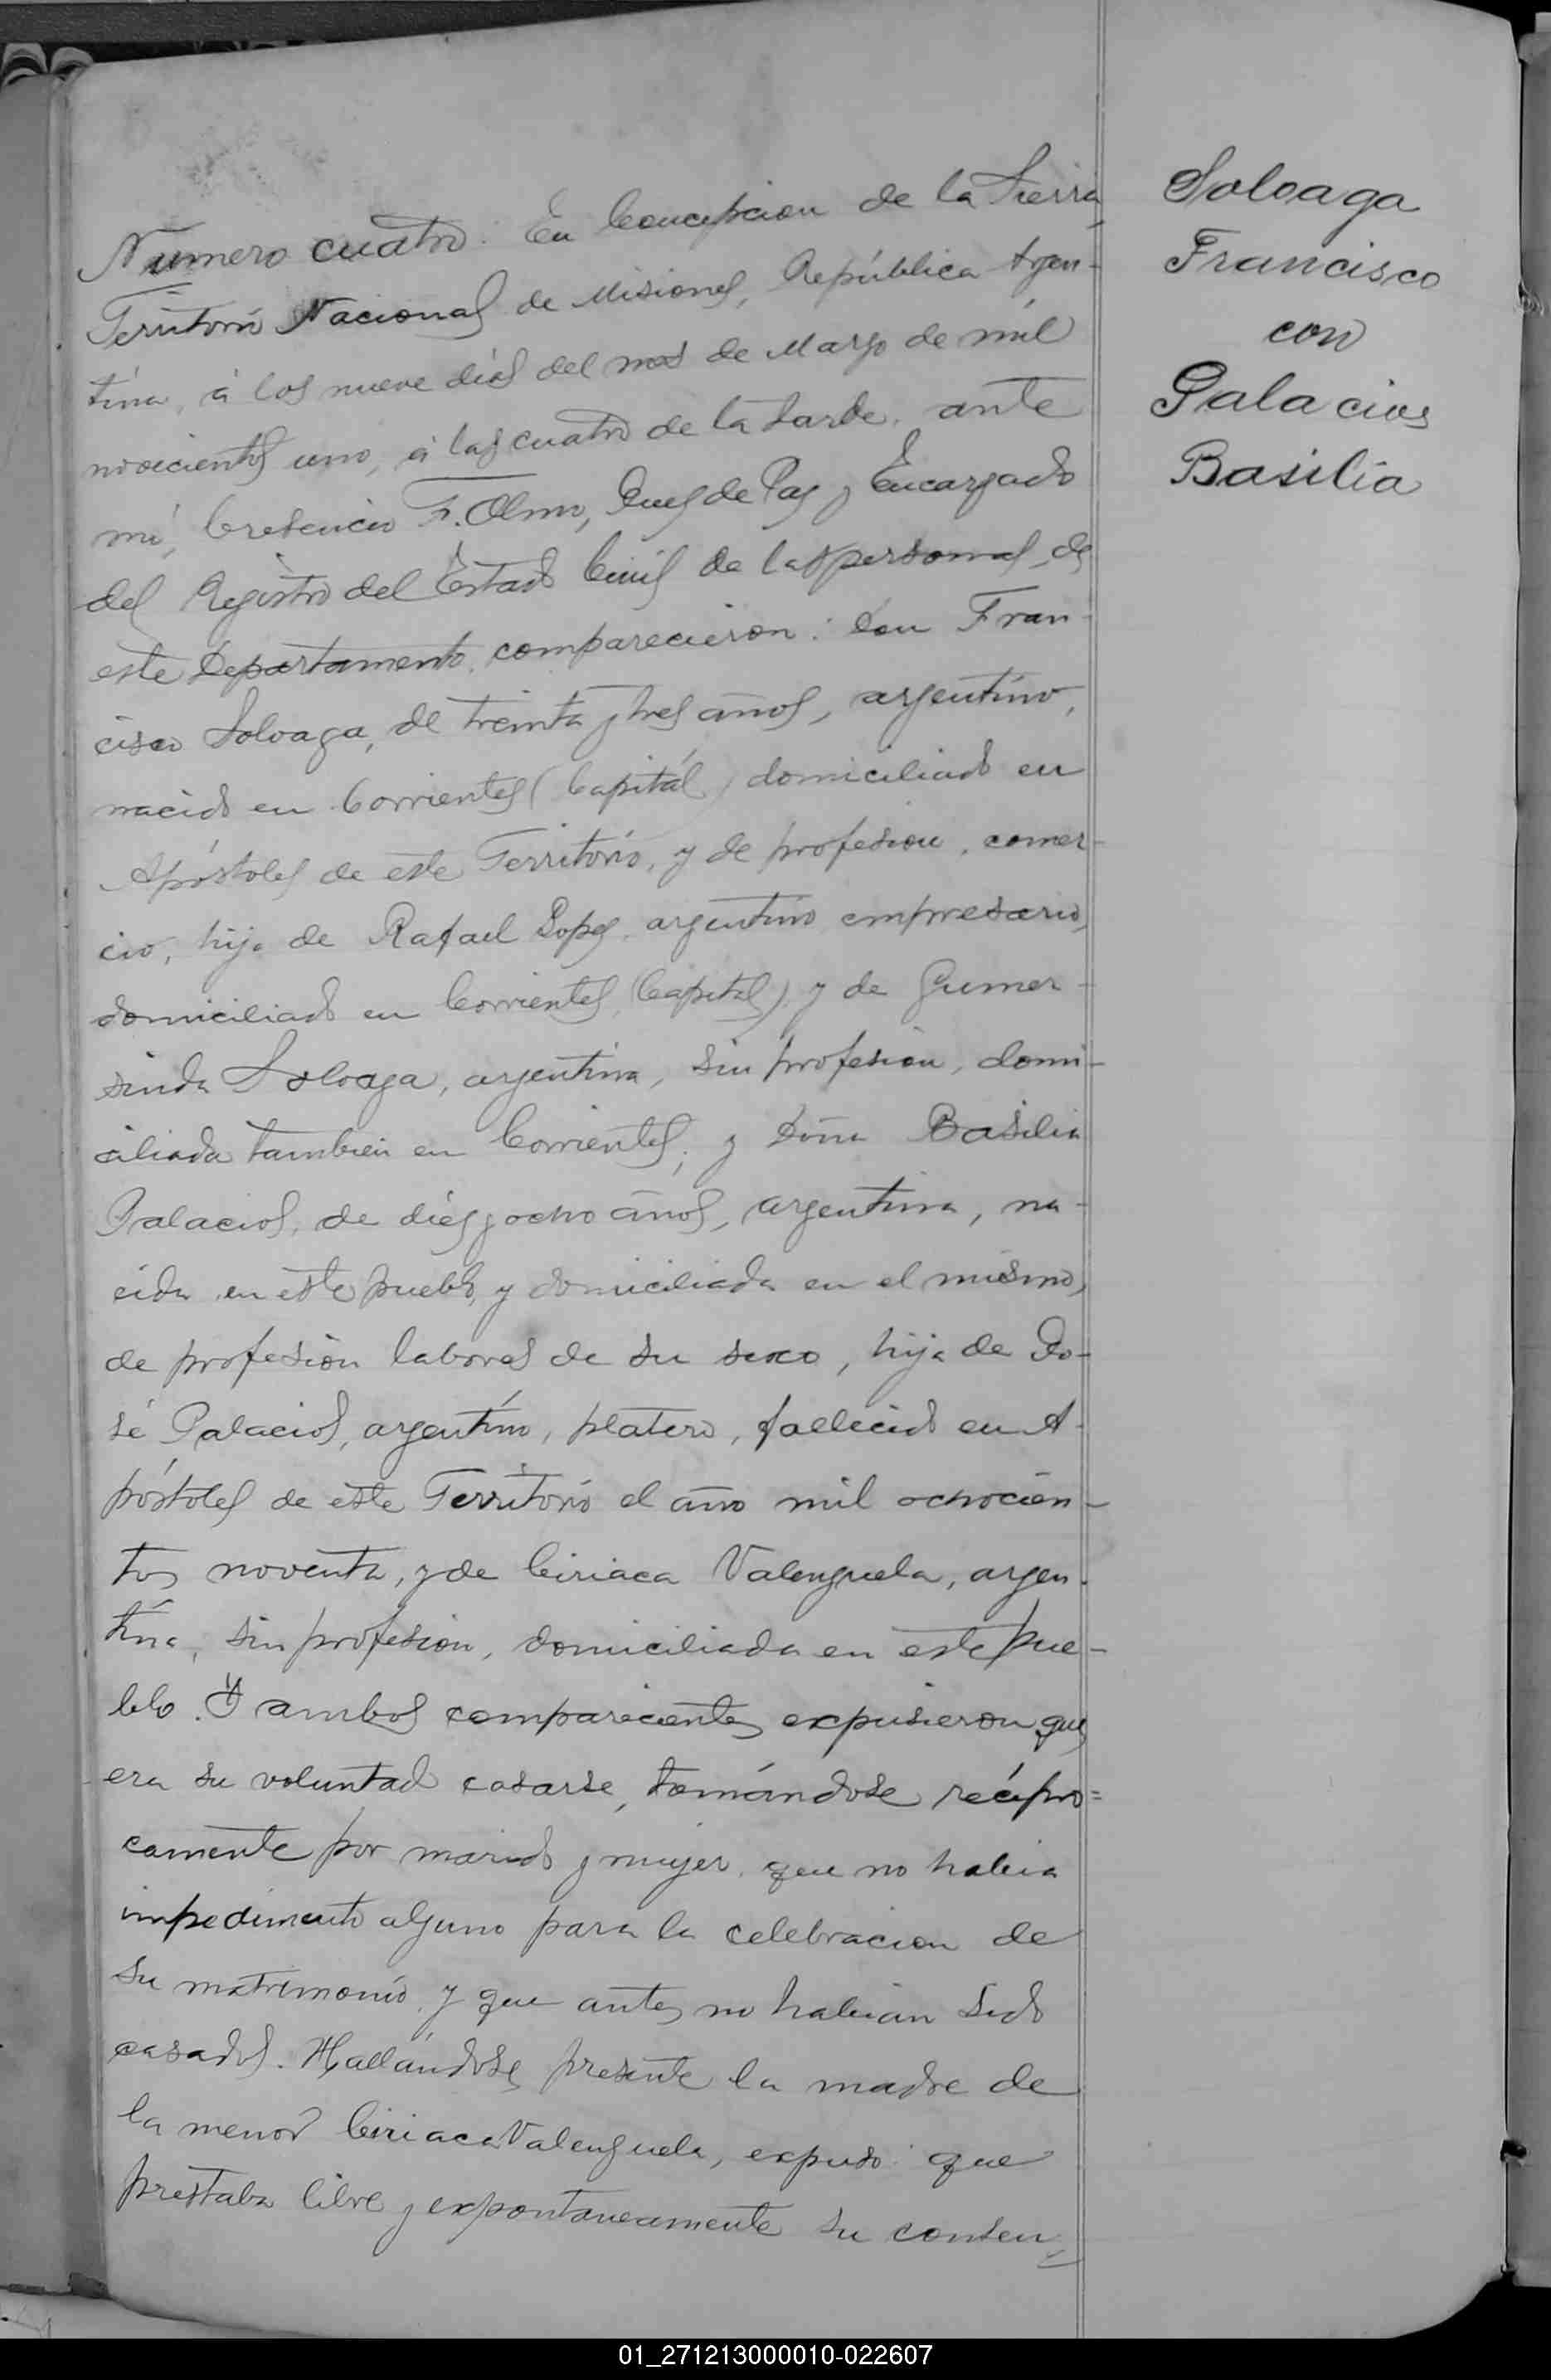 Número cuatro: En Concepcion de la Sierra,
Territorio Nacional de Misiones, República Argen-
tina, á los nueve dias del mes de Marzo de mil
novecientos uno, á las cuatro de la tarde, ante
mi, Cresencio F. Olmo, Juez de Paz y Encargado
del Registro del Estado Civil de las personas, de
este Departamento, comparecieron: Don Fran-
cisco Soloaga, de treinta y tres años, argentino,
nacido en Corrientes (Capitál) domiciliado en
Apóstoles de este Territorio, y de profesion, comer-
cio, hijo de Rafael Lopez, argentino, empresario,
domiciliado en Corrientes, (Capital), y de Gumer-
sinda Soloaga, argentina, sin profesion, domi-
ciliada tambien en Corrientes; y Doña Basilia
Palacios, de diez y ocho años, argentina, na-
cida en este pueblo, y domiciliada en el mismo,
de profesion labores de su sexo, hija de Jo-
sé Palacios, argentino, platero, fallecido en A-
póstoles de este Territorio el año mil ochocien-
tos noventa, y de Ciriaca Valenzuela, argen-
tina, sin profesion, domiciliada en este pue-
blo. Y ambos comparecientes expusieron que
era su voluntad casarse, tomándose recípro=
camente por marido y mujer, que no habia
impedimento alguno para la celebracion de
su matrimonio, y que antes no habian sido
casados. Hallándose presente la madre de
la menor Ciriaca Valenzuela, expuso: que
prestaba libre y expontaneamente su consen=
Soloaga
Francisco
con
Palacios
Basilia
01_271213000010-022607